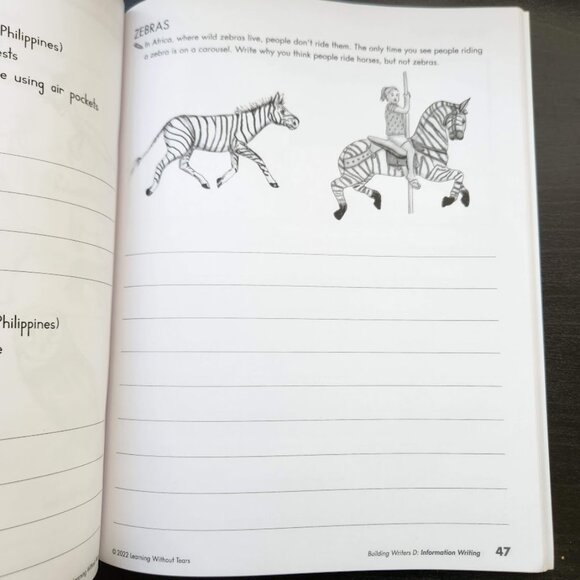 Philippines)
ests
e using air pockets
Philippines)
e
ZEBRAS
In Africa, where wild zebras live, people don't ride them. The only time you see people riding
a zebra is on a carousel. Write why you think people ride horses, but not zebras.
© 2022 Learning Without Tears
Building Writers D: Information Writing 47